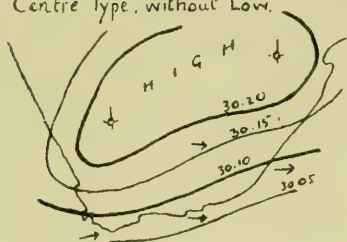 Centre Type, without Low.
HIGH
30.20
30.15
30.10
30.05